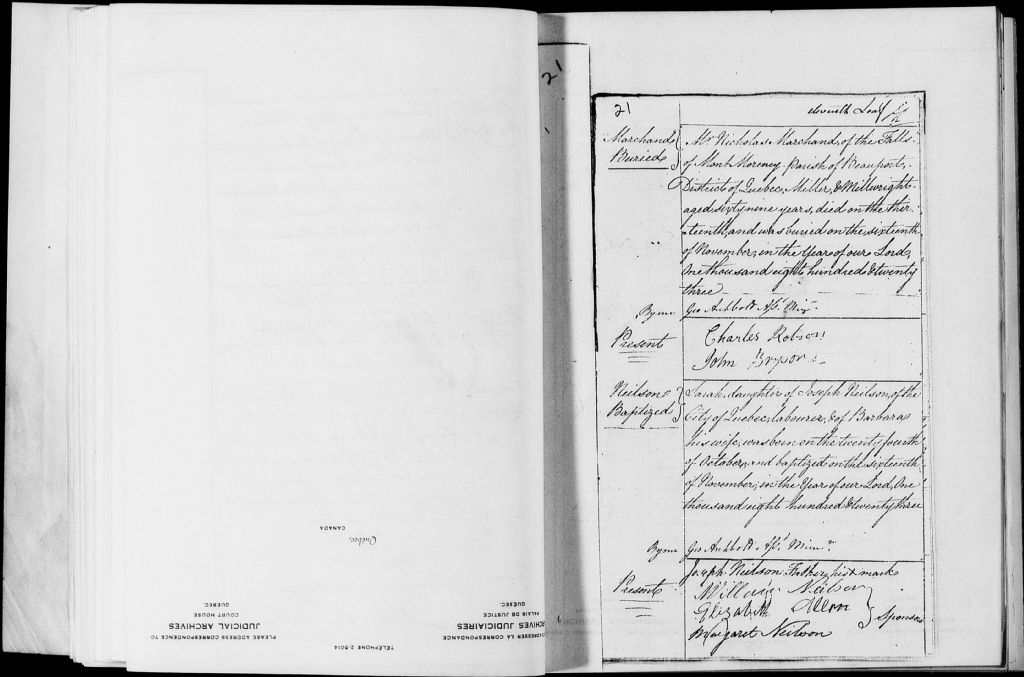 21
21
eleventh Leaf
Marchand
Buried
Mr. Nicholas Marchand, of the Falls
of Mont Morency Parish of Beauport,
District of Quebec, Miller, & Millwright
aged sixty nine years, died on the thir
teenth, and was buried on the sixteenth
of November, in the Year of our Lord,
One thousand eight hundred & twenty
three
By me Geo Archbold Ast. Minr.
Present
Charles Robson
John Bryson
Neilson
Baptized
Sarah, daughter of Joseph Neilson, of the
City of Quebec, labourer, & of Barbara
his wife, was born on the twenty fourth
of October, and baptized on the sixteenth
of November, in the Year of our Lord, One
thousand eight hundred & twenty three
By me Geo Archbold Ast. Minr.
Present
Joseph Neilson Father, his + mark
William Neilson
Elizabeth Allen
Margaret Neilson
Sponsors
Québec,
CANADA
TÉLÉPHONE 2-5014
PLEASE ADDRESS CORRESPONDENCE TO
JUDICIAL ARCHIVES
COURT HOUSE
QUEBEC
ADRESSER LA CORRESPONDANCE
ARCHIVES JUDICIAIRES
PALAIS DE JUSTICE
QUÉBEC.